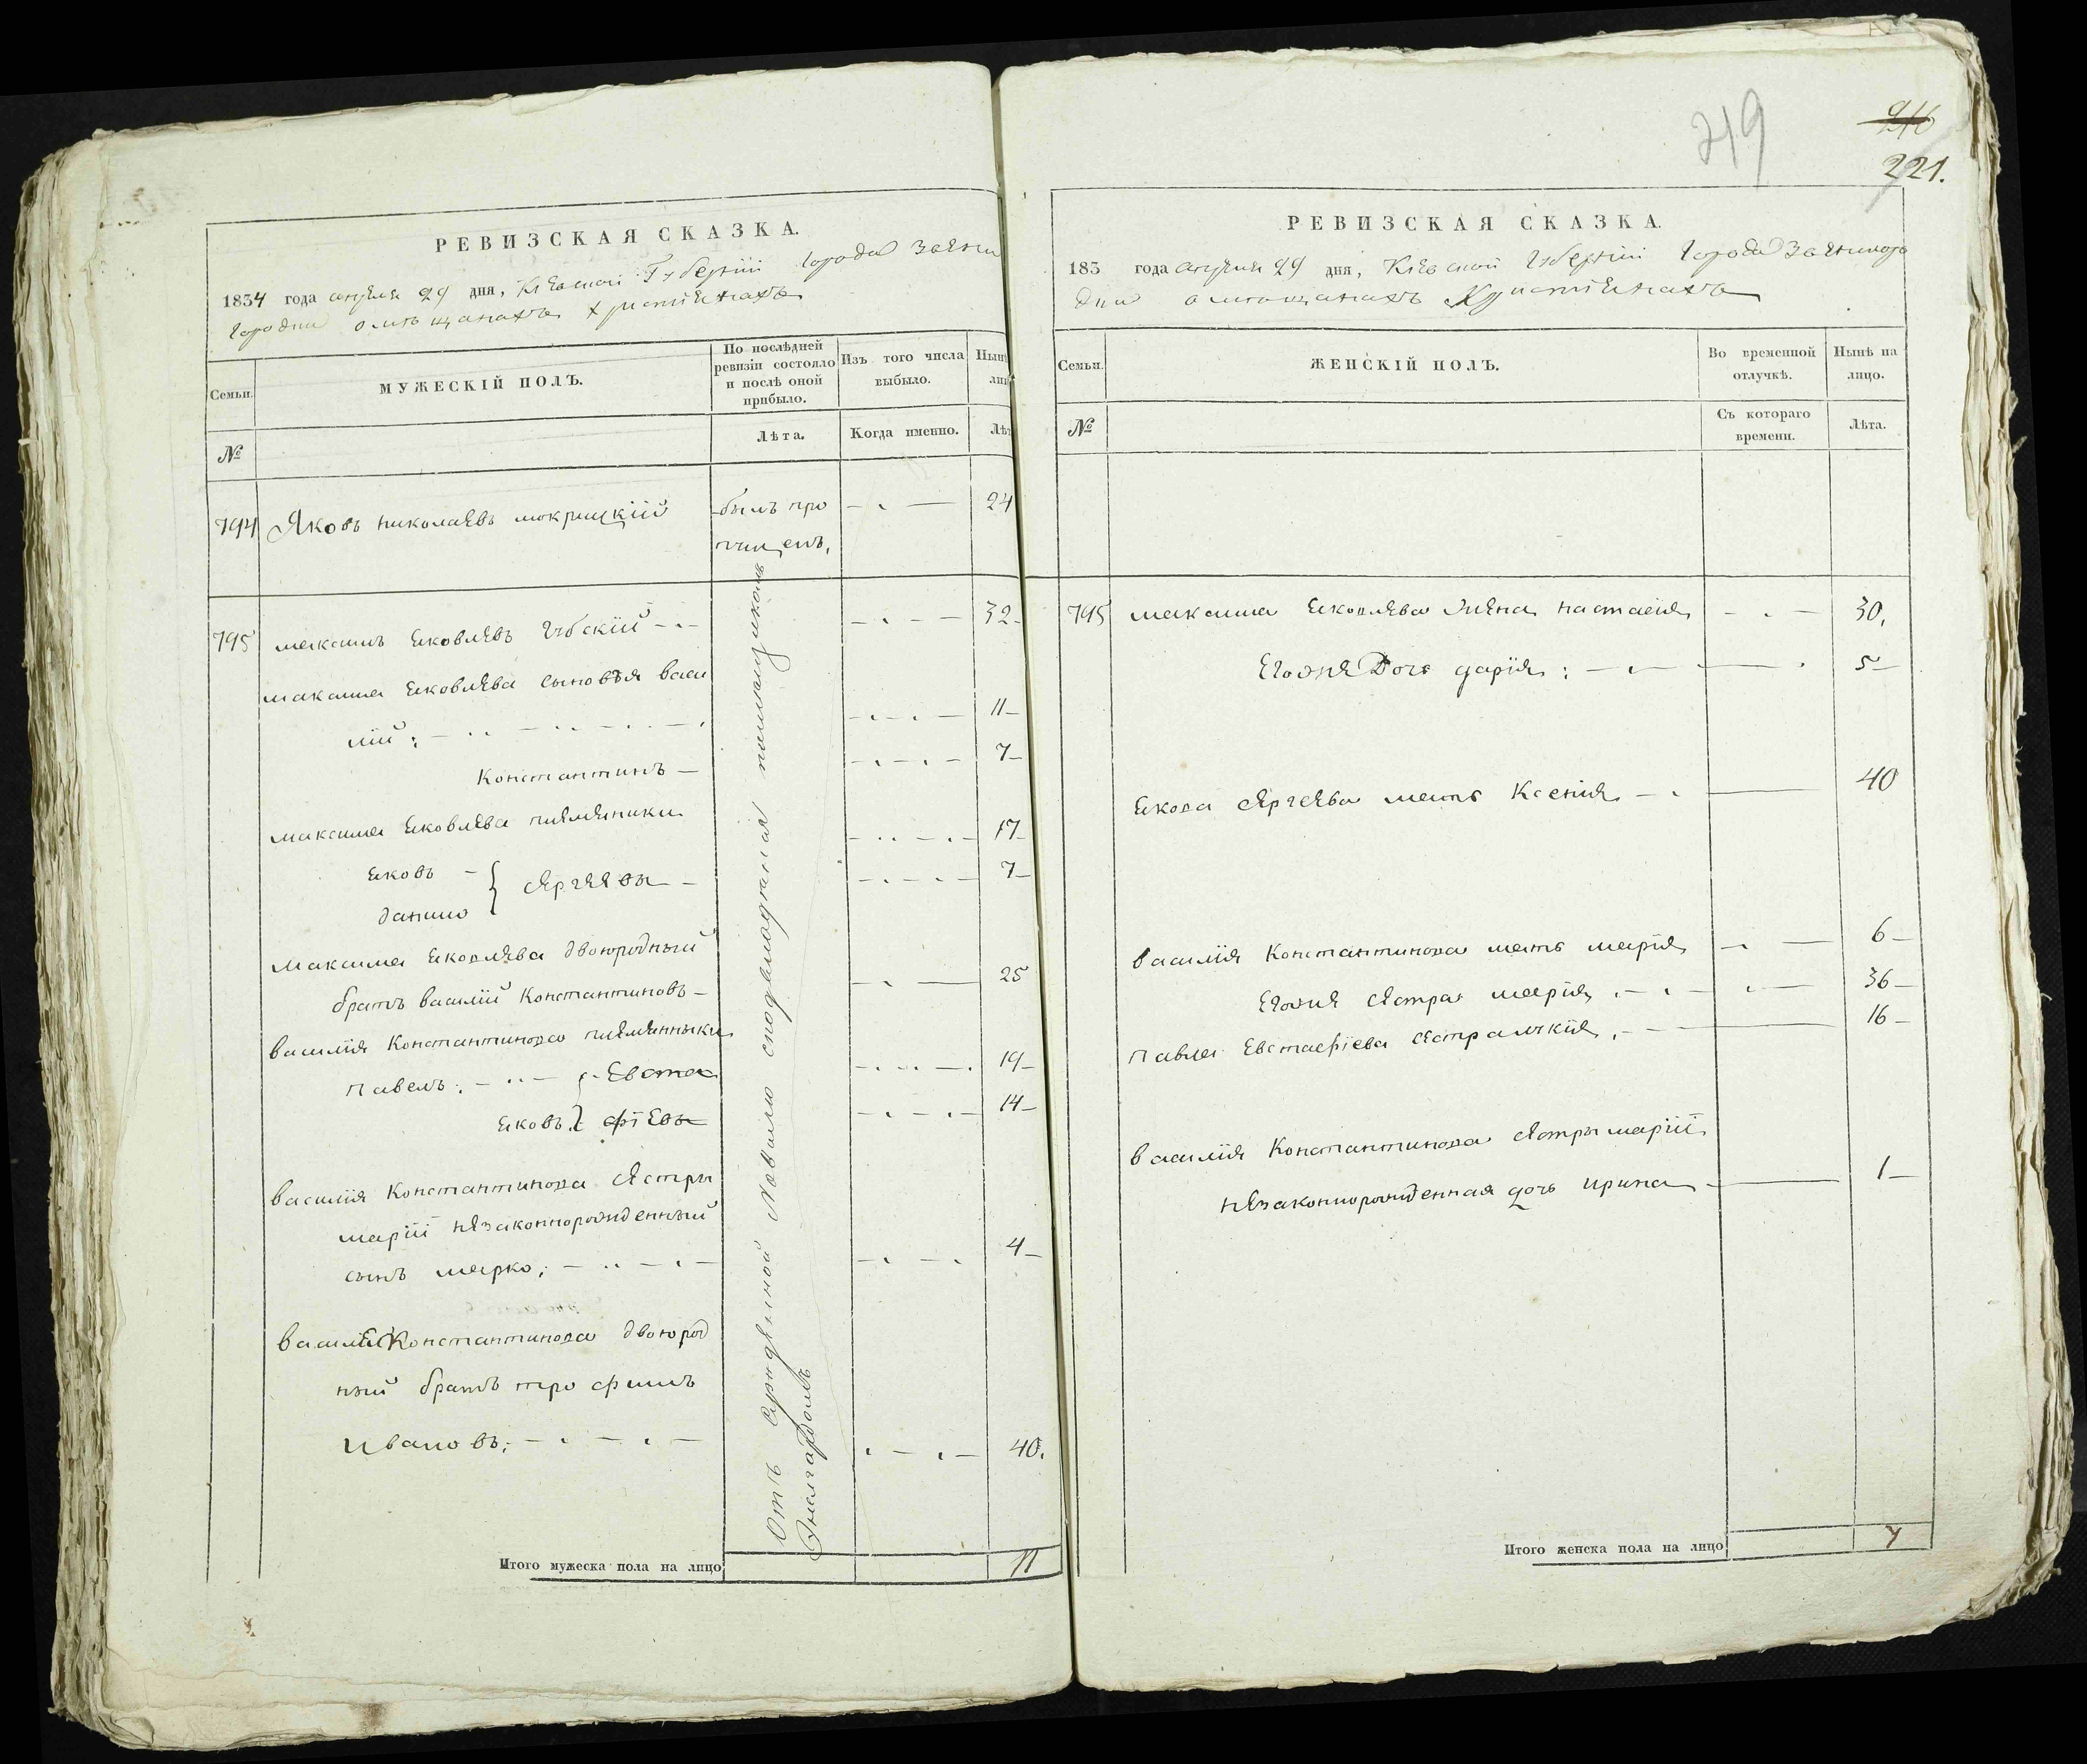 219
216
221.
РЕВИЗСКАЯ СКАЗКА.
1834 года апреля 29 дня, Киевской Губернии Города Звени
городки о мещанахъ христиенахъ
Семьи.
МУЖЕСКІЙ ПОЛЪ.
По послѣдней ревизіи состояло и послѣ оной прибыло.
Изъ того числа выбыло.
Нынѣ
№
Лѣта.
Когда именно.
794 Яковъ николаевъ мокрицкій былъ про 24
пущенъ,
795 максимъ яковлевъ Губскій 32
максима яковлева сыновъя васи
лій: 11
Константинъ 7
максима яковлева племяники
яковъ 17
данило } сергѣевы 7
максима яковлева двоюродный
братъ василій Константиновъ 25
василія Константинова племянники
павелъ: } Евста 19
яковъ } фіевы 14
василія Константинова сестры
маріи незаконнорожденный
сынъ марко; 4
василія Константинова двоюрод
ный братъ трофимъ
Ивановъ; 40.
Итого мужеска пола на лицо 11
РЕВИЗСКАЯ СКАЗКА.
183 года апреля 29 дня, Киевской Губерніи Города Звениго
дки о мещанахъ Христиенахъ
Семьи.
ЖЕНСКІЙ ПОЛЪ.
Во временной отлучкѣ.
Нынѣ на лицо.
№
Съ котораго времени.
Лѣта.
795 максима яковлева жена настасия 30.
Егожне Дочь дарія: 5
якова сергеева мать Ксения 40
василія Константинова мать марія 6
Егожне сестра марія, 36
павла Евстафіева сестра 16
василія Константинова сестры маріи
незаконнорожденная дочь ирина 1
Итого женска пола на лицо 7